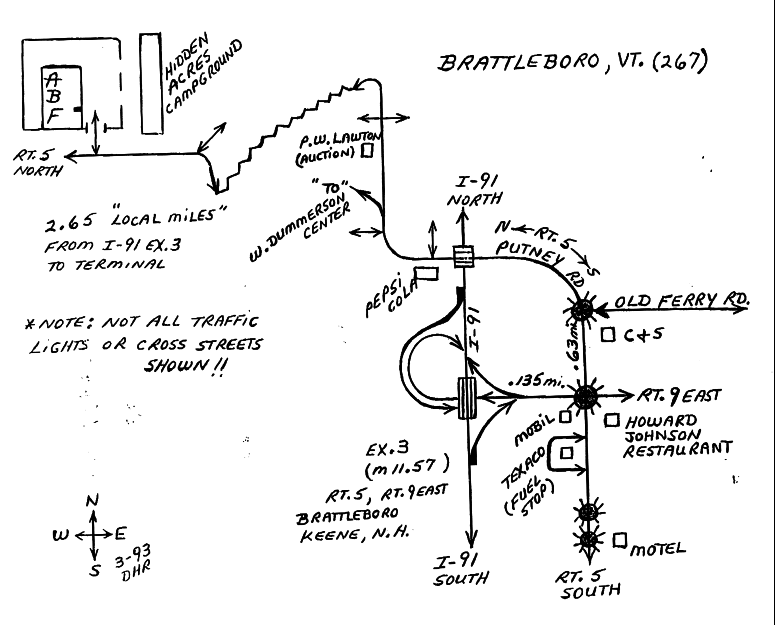 BRATTLEBORO, VT. (267)
HIDDEN
ACRES
CAMPGROUND
A
B
F
RT. 5
NORTH
P.W. LAWTON
(AUCTION)
"TO"
W. DUMMERSON
CENTER
I-91
NORTH
N ← RT. 5 → S
PUTNEY RD
2.65 "LOCAL MILES"
FROM I-91 EX.3
TO TERMINAL
PEPSI
COLA
OLD FERRY RD.
*NOTE: NOT ALL TRAFFIC
LIGHTS OR CROSS STREETS
SHOWN!!
I-91
.63mi.
C+S
.135mi.
RT. 9 EAST
MOBIL
HOWARD
JOHNSON
RESTAURANT
TEXACO
(FUEL
STOP)
EX.3
(m 11.57)
RT.5, RT.9 EAST
BRATTLEBORO
KEENE, N.H.
N
W
E
S
3-93
DHR
I-91
SOUTH
MOTEL
RT. 5
SOUTH